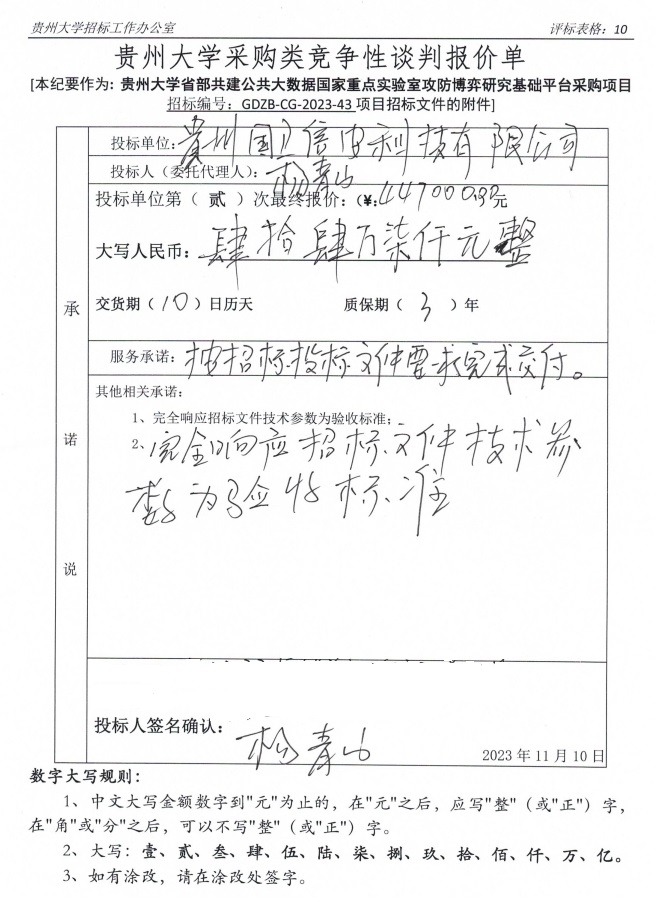 贵州大学招标工作办公室 评标表格：10
贵州大学采购类竞争性谈判报价单
[本纪要作为：贵州大学省部共建公共大数据国家重点实验室攻防博弈研究基础平台采购项目
招标编号：GDZB-CG-2023-43 项目招标文件的附件]
投标单位：贵州国卫信安科技有限公司
投标人（委托代理人）：杨青山
投标单位第（ 贰 ）次最终报价：(¥:447000.00元
大写人民币：肆拾肆万柒仟元整
承
交货期（10）日历天 质保期（3）年
服务承诺：按招标投标文件要求完成交付。
其他相关承诺：
1、完全响应招标文件技术参数为验收标准；
诺
2、完全响应招标文件技术参
数为验收标准
说
投标人签名确认：杨青山
2023 年 11 月 10 日
数字大写规则：
1、中文大写金额数字到"元"为止的，在"元"之后，应写"整"（或"正"）字，
在"角"或"分"之后，可以不写"整"（或"正"）字。
2、大写：壹、贰、叁、肆、伍、陆、柒、捌、玖、拾、佰、仟、万、亿。
3、如有涂改，请在涂改处签字。